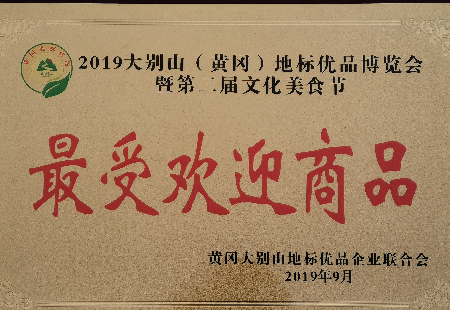 2019大别山（黄冈）地标优品博览会
暨第二届文化美食节
最受欢迎商品
黄冈大别山地标优品企业联合会
2019年9月